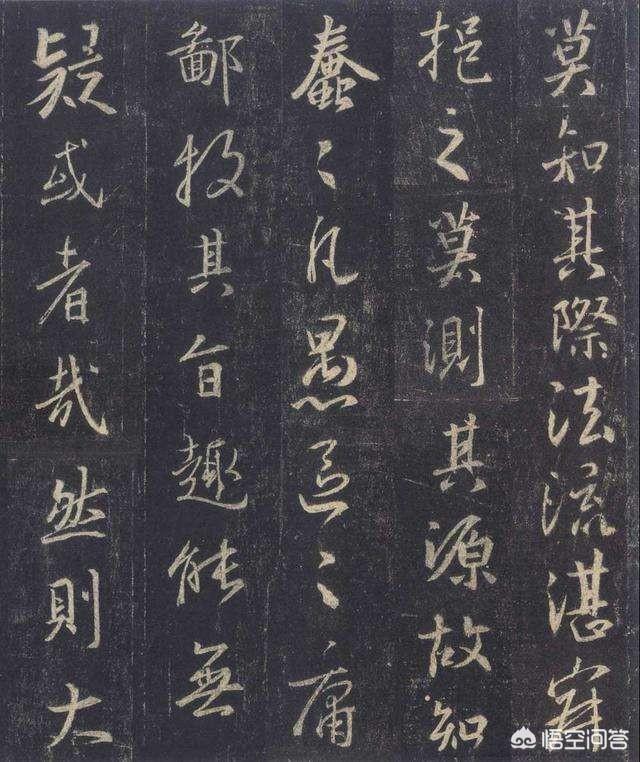 莫知其際法流湛寂
挹之莫測其源故知
蠢〻凡愚區〻庸
鄙投其旨趣能無
疑或者哉然則大
悟空问答